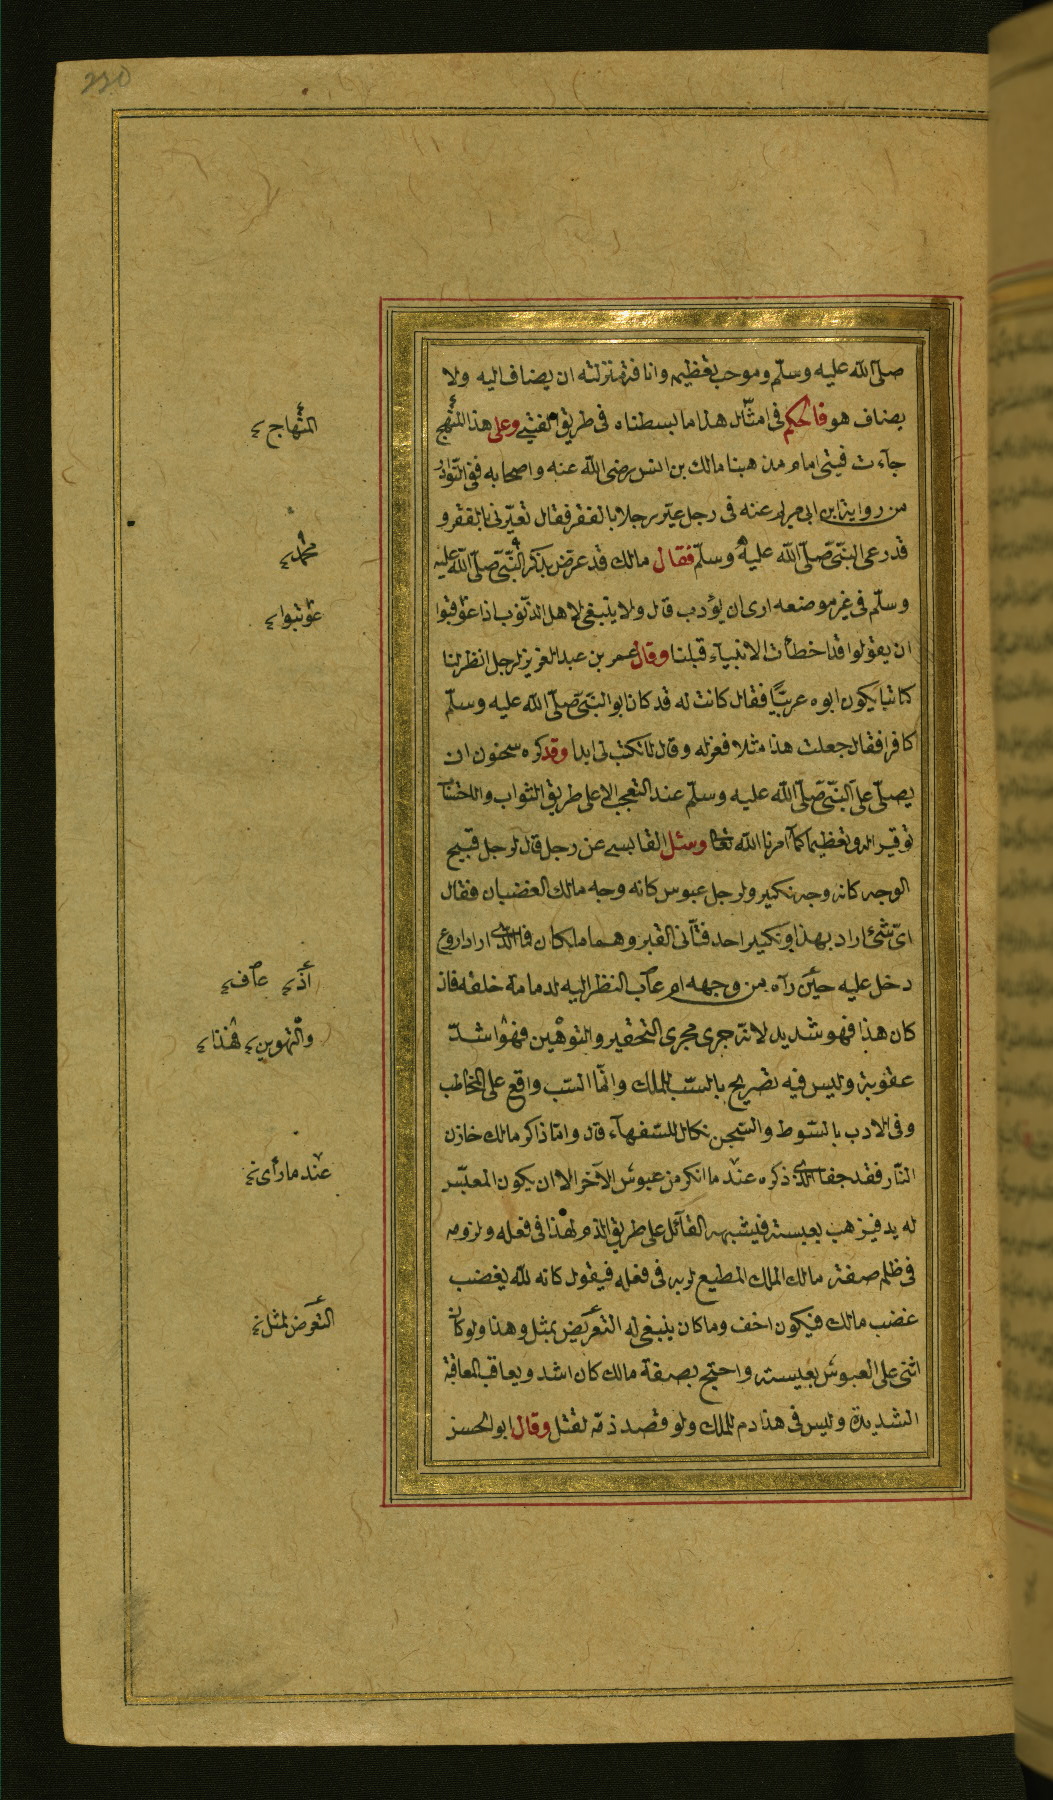 230
صلّى الله عليه وسلّم وموجب تعظيمه وانافة منزلته ان يضاف اليه ولا
يضاف هو فالحكم فى امثال هذا ما بسطناه فى طريق الفتيى وعلى هذا المنهج
جآءت فيتى امام مذهبنا مالك بن انس رضى الله عنه واصحابه ففى النّوادر
من رواية ابن ابى مريم عنه فى رجل عيّر رجلا بالفقر فقال تعيّرنى بالفقر و
قد رعى النبّىّ صلّى الله عليه وسلّم فقال مالك قد عرّض بذكر النبّىّ صلّى الله عليه
وسلّم فى غير موضعه ارى ان يؤدب قال ولا ينبغى لاهل الذنوب اذا عوقبوا
ان يقولوا قد اخطأت الانبيآء قبلنا وقال عمر بن عبد العزيز لرجل انظر لنا
كاتبا يكون ابوه عربيّا فقال كاتب له قد كان ابو النبّىّ صلّى الله عليه وسلّم
كافرا فقال جعلت هذا مثلا فعزله وقال لا تكتب لى ابدا وقد كره سحنون ان
يصلّى على النبّىّ صلّى الله عليه وسلّم عند التعجب الا على طريق الثواب والاحتساب
توقيرا له وتعظيما كما امرنا الله تعالى وسئل القابسى عن رجل قال لرجل قبيح
الوجه كانه وجه نكير ولرجل عبوس كانه وجه مالك الغضبان فقال
اىّ شىء اراد بهذا ونكير احد فتّانى القبر وهما ملكان فما الذى اراد اروع
دخل عليه حين رآه من وجهه ام عاب النظر اليه لدمامة خلقه فان
كان هذا فهو شديد لانه جرى مجرى التحقير والتوهين فهو اشدّ
عقوبة وليس فيه تصريح بالسّب للملك وانّما السّب واقع على المخاطب
وفى الادب بالسّوط والسّجن نكال للسّفهآء قال وامّا ذاكر مالك خازن
النّار فقد جفا الذى ذكره عند ما انكر من عبوس الآخر الا ان يكون المعبّس
له يد فيرهب بعبسته فيشبهه القآئل على طريق الذم لهذا فى فعله ولزومه
فى ظلمه صفة مالك الملك المطيع لربه فى فعله فيقول كانه لله يغضب
غضب مالك فيكون اخف وما كان ينبغى له التعريض بمثل وهذا ولو كان
اثنى على العبوس بعبسته واحتج بصفة مالك كان اشد ويعاقب المعاقبة
الشديدة وليس فى هذا ذم للملك ولو قصد ذمّه لقتل وقال ابو الحسن
المنهاج
محمّد
عوتبوا
أذى عاف
والتهوين فهذا
عند ما رأى
التعرض لمثل